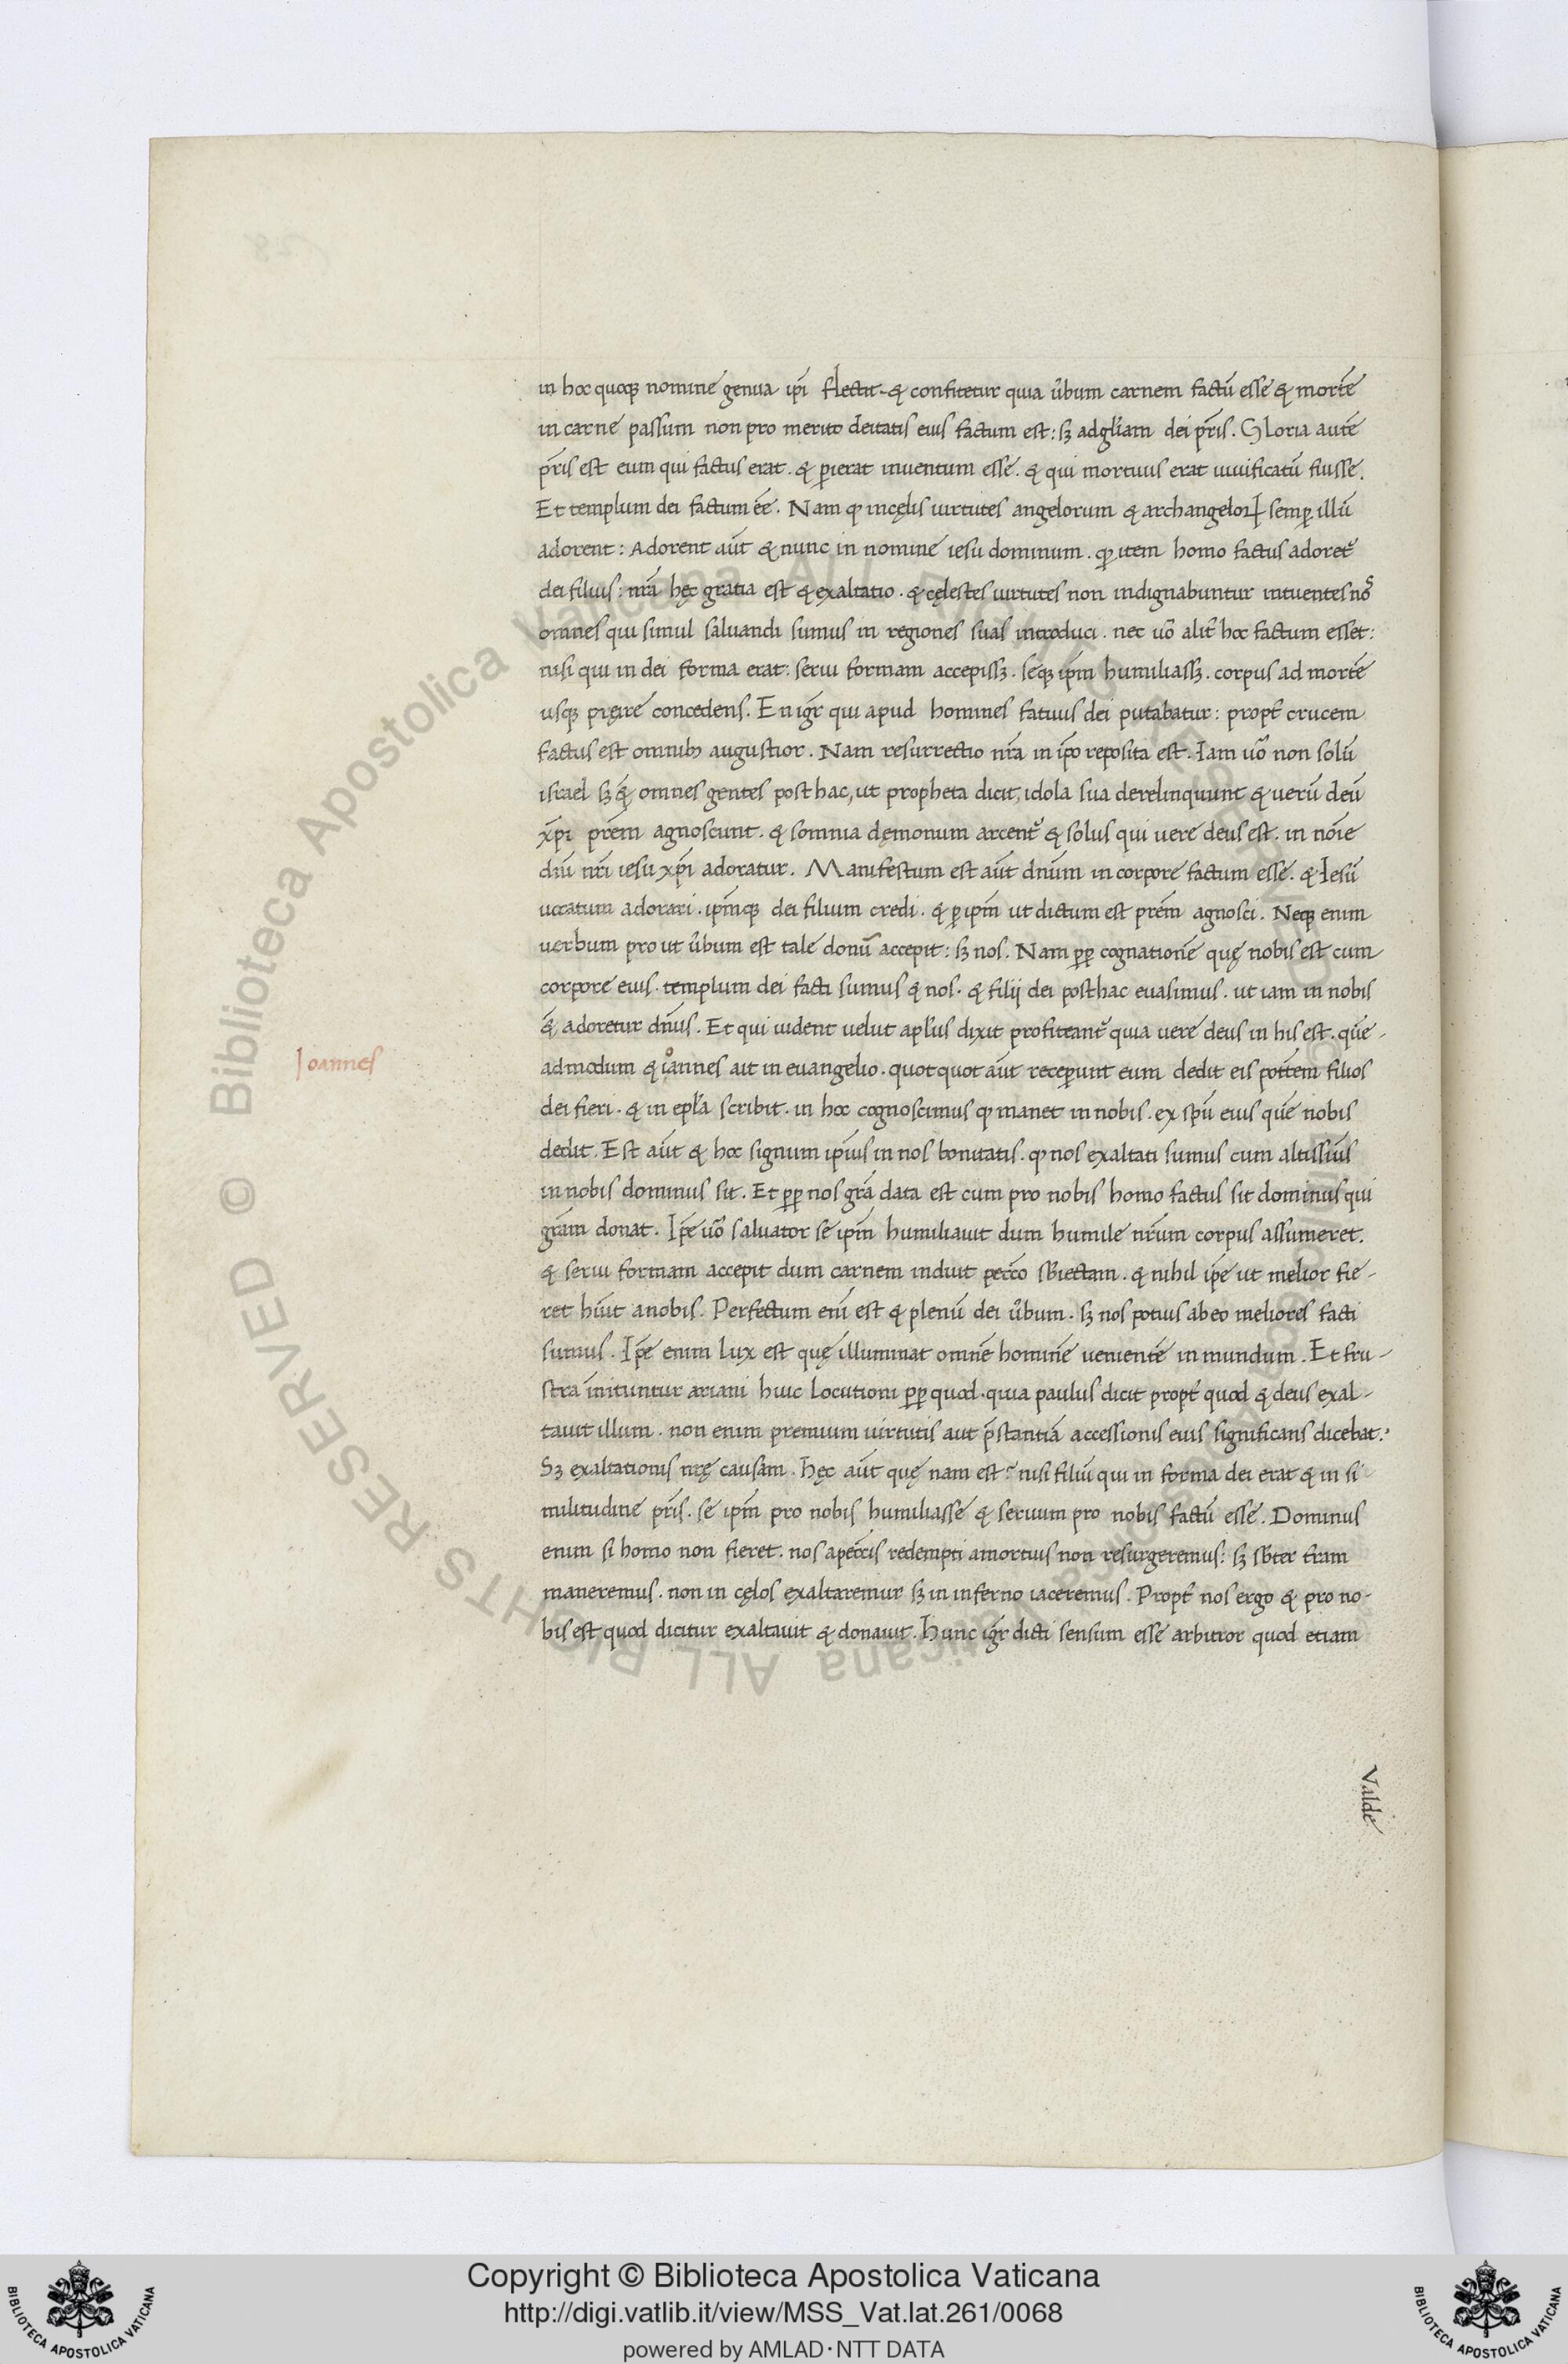 in hoc quoqꝫ nomine genua ip̄i flectit. & confitetur quia u̅bum carnem factū esse & mortē
in carne passum non pro merito deitatis eius factum est: sꝫ ad gl̄iam dei pr̄is. Gloria autē
pr̄is est eum qui factus erat. & ꝑierat inuentum esse. & qui mortuus erat uiuificatū fuisse.
Et templum dei factum ēe. Nam ꝙ in cęlis uirtutes angelorum & archangeloꝝ semꝑ illū
adorent: Adorent aūt & nunc in nomine iesu dominum. ꝙ item homo factus adoret᷑
dei filius: nr̄a hęc gratia est & exaltatio. & cęlestes uirtutes non indignabuntur intuentes nos
omnes qui simul saluandi sumus in regiones suas introduci. nec uo᷑ alit᷑ hoc factum esset:
nisi qui in dei forma erat: serui formam accepissꝫ. seqꝫ ip̄m humiliassꝫ. corpus ad mortē
usqꝫ pręire concedens. En igr̄ qui apud homines fatuus dei putabatur: propt᷑ crucem
factus est omnibꝫ augustior. Nam resurrectio nr̄a in ip̄o reposita est. Iam uo᷑ non solū
israel sꝫ & omnes gentes post hac, ut propheta dicit, idola sua derelinquunt & uerū deū
xp̄i prēm agnoscunt. & somnia dęmonum arcent᷑ & solus qui uere deus est. in nōie
dn̄i nr̄i iesu xp̄i adoratur. Manifestum est aūt dn̄um in corpore factum esse. & Iesū
uocatum adorari. ip̄mqꝫ dei filium credi. & ꝑ ip̄m ut dictum est prēm agnosci. Neqꝫ enim
uerbum pro ut u̅bum est tale donū accepit: sꝫ nos. Nam ꝑꝑ cognationē quę nobis est cum
corpore eius. templum dei facti sumus & nos. & filij dei posthac euasimus. ut iam in nobis
& adoretur dn̄us. Et qui uident uelut apl̄us dixit profiteant᷑ quia uere deus in his est. quē-
admodum & ioannes ait in euangelio. quotquot aūt receꝑunt eum dedit eis pott̄em filios
dei fieri. & in epl̄a scribit. in hoc cognoscimus ꝙ manet in nobis. ex sp̄u eius quē nobis
dedit. Est aūt & hoc signum ip̄ius in nos bonitatis. ꝙ nos exaltati sumus cum altissim̄us
in nobis dominus sit. Et ꝑꝑ nos gr̄a data est cum pro nobis homo factus sit dominus qui
gr̄am donat. Ip̄e uo᷑ saluator se ip̄m humiliauit dum humile nr̄um corpus assumeret.
& serui formam accepit dum carnem induit pecc̄o sb̄iectam. & nihil ip̄e ut melior fie-
ret hūit a nobis. Perfectum enī est & plenū dei u̅bum. sꝫ nos potius ab eo meliores facti
sumus. Ip̄e enim lux est quę illuminat omnē hominē uenientē in mundum. Et fru-
stra innituntur ariani huic locutioni ꝑꝑ quod. quia paulus dicit propt᷑ quod & deus exal-
tauit illum. non enim premium uirtutis aut p̄stantiā accessionis eius significans dicebat.
Sꝫ exaltationis nr̄ę causam. hęc aūt quę nam est? nisi filiū qui in forma dei erat & in si
militudine pr̄is. se ip̄m pro nobis humiliasse & seruum pro nobis factū esse. Dominus
enim si homo non fieret. nos a pecc̄is redempti a mortuis non resurgeremus: sꝫ sb̄ter tr̄am
maneremus. non in cęlos exaltaremur sꝫ in inferno iaceremus. Propt᷑ nos ergo & pro no-
bis est quod dicitur exaltauit & donauit. Hunc igr̄ dicti sensum esse arbitror quod etiam
Ioannes
Valde
Copyright © Biblioteca Apostolica Vaticana
http://digi.vatlib.it/view/MSS_Vat.lat.261/0068
powered by AMLAD·NTT DATA
© Biblioteca Apostolica Vaticana ALL RIGHTS RESERVED
BIBLIOTECA APOSTOLICA VATICANA
BIBLIOTECA APOSTOLICA VATICANA